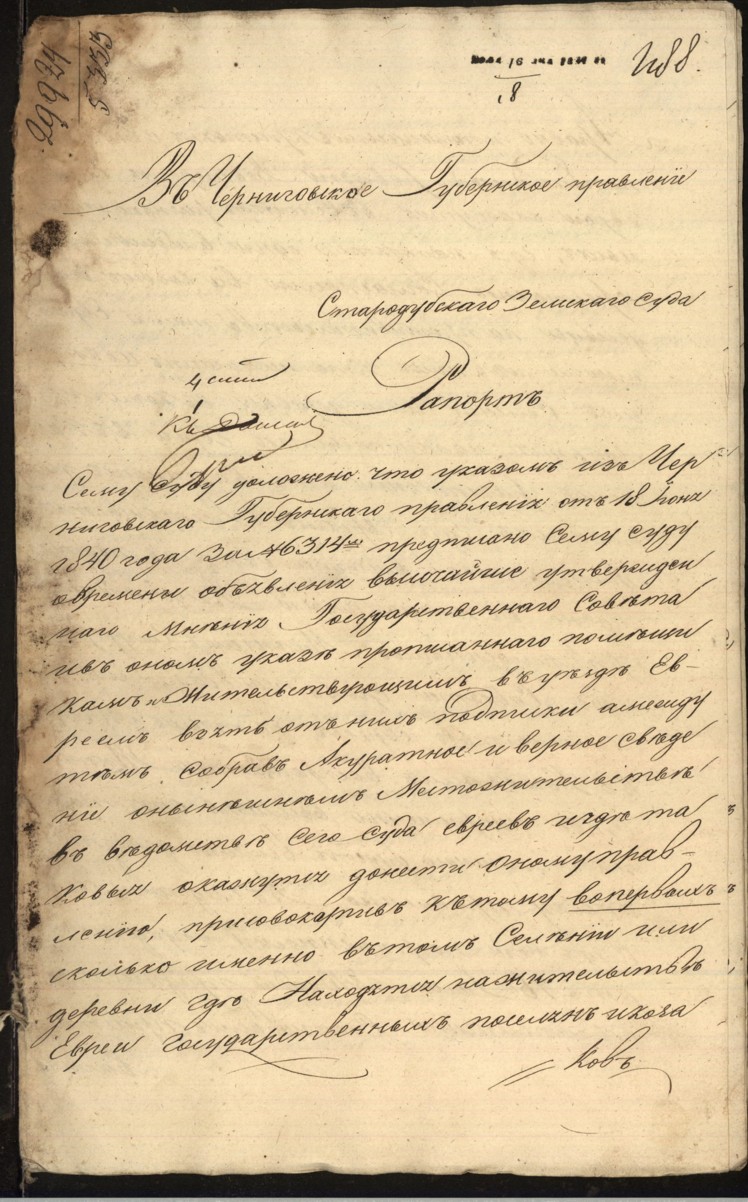 29974
5333
1188.
18
Въ Черниговское Губернское правленіе
Стародубскаго Земскаго суда
4 стол
Рапортъ
Къ
Сему суду доложено что указомъ изъ Чер
ниговскаго Губернскаго правленія отъ 18 Іюня
1840 года за № 6314мъ предписано Сему суду
овремены объявленія высочайше утвержден
наго Мнѣнія Государственнаго Совѣта
ивъ ономъ указѣ прописаннаго помѣщи
камъ и Жительствующимъ въ уѣздѣ Ев-
реемъ взять отъ нихъ подписки амежду
тѣмъ собравъ Акуратное и верное свѣде
ніе онынѣшнемъ Местожительствѣ
въ вѣдомствѣ сего суда евреевъ игдѣ та
ковыя окажутся донести оному прав-
ленію, присовокупивъ къ тому вопервыхъ
сколько именно въ томъ Селѣніи или
деревни гдѣ Находятся нажительствѣ
Евреи государственныхъ поселянъ икоза
ковъ